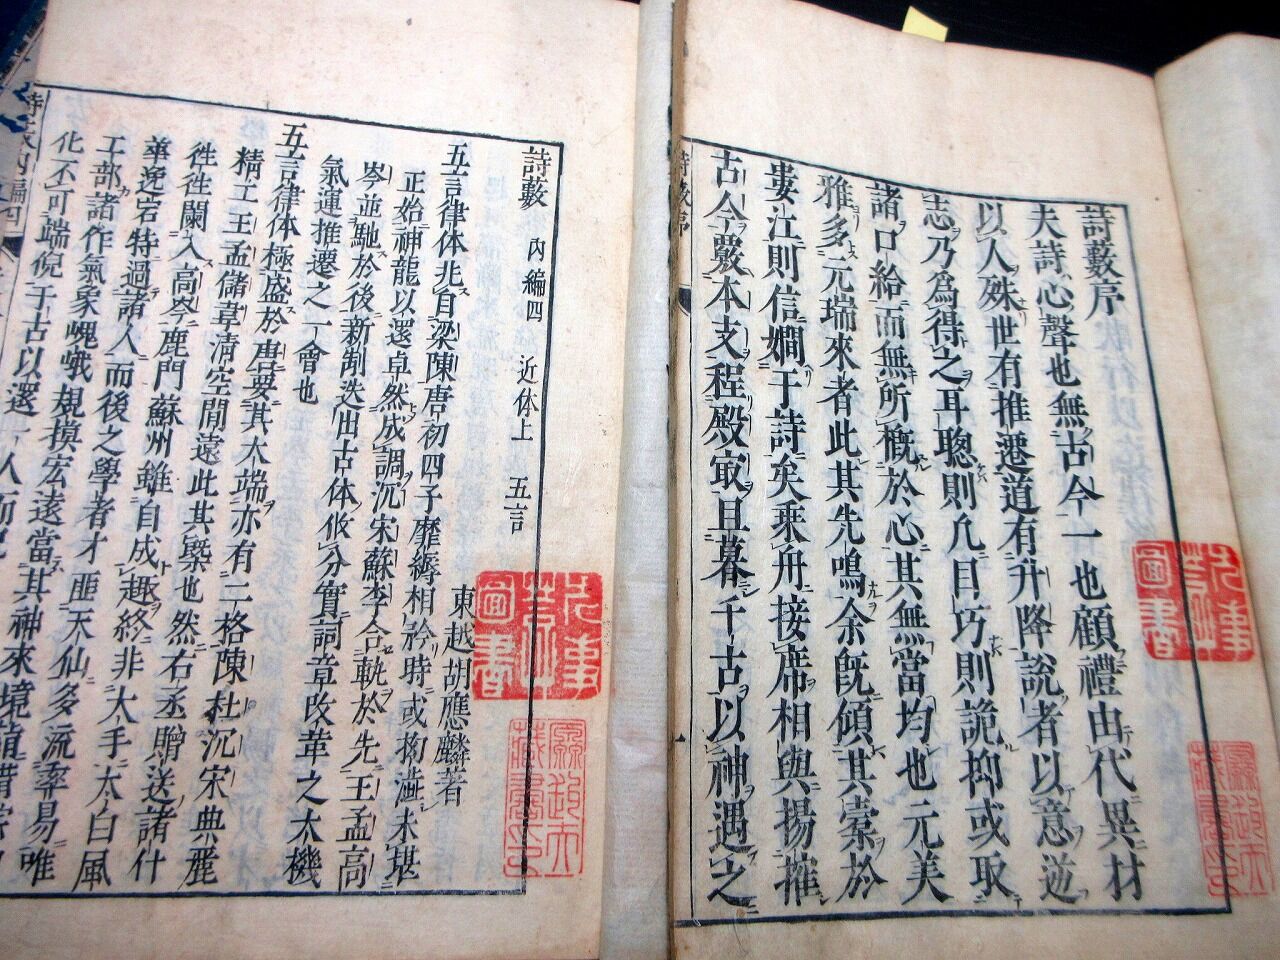 詩藪序
夫詩心聲也無古今一也顧禮由代異材
以人殊世有推遷道有升降說者以意逆
志乃為得之耳聰則凢目巧則詭抑或取
諸口給而無所概於心其無當均也元美
雅多元瑞來者此其先鳴余旣傾其橐於
婁江則信嫺于詩矣乗舟接席相與揚搉
古今覈本支程殿㝡且暮千古以神遇之
詩藪 內編四 近体上 五言
東越胡應麟著
五言律体兆自梁陳唐初四子靡縟相矜時或拗澁未堪
正始神龍以還卓然成調沉宋蘇李合軌於先王孟高
岑並馳於後新制迭出古体攸分實詞章改革之大機
氣運推遷之一會也
五言律体極盛於唐要其大端亦有二格陳杜沉宋典麗
精工王孟儲韋清空閒遠此其槩也然右丞贈送諸什
徃徃闌入高岑鹿門蘇州雖自成趣終非大手太白風
華逸宕特過諸人而後之學者才匪天仙多流率易唯
工部諸作氣象嵬峨規摸宏遠當其神來境詣錯綜
化不可端倪千古以還一人而
詩藪序
元事
圖書